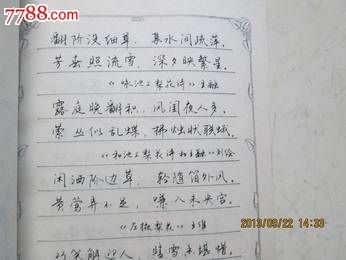 7788.com
翻阶没细草,集水间疏萍。
芳春照流雪,深夕映繁星。
《咏池上梨花诗》王融
露庭晚翻积,风闺夜入多。
萦丛似乱蝶,拂烛状联蛾。
《和池上梨花诗和王融》刘绘
闲洒阶边草,轻随箔外风。
黄莺弄不足,嗛入未央宫。
《左掖梨花》王维
巧笑解迎人,晴雪香堪惜。
2013/09/22 14:39